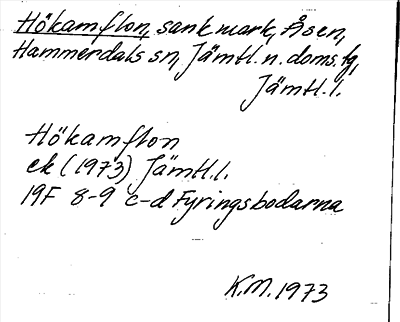 Hökamflon, sank mark, Åsen,
Hammerdals sn, Jämtl. n. doms.fg,
Jämtl. l.
Hökamflon
ek (1973) Jämtl. l.
19F 8-9 c-d Fyringsbodarna
K.M. 1973